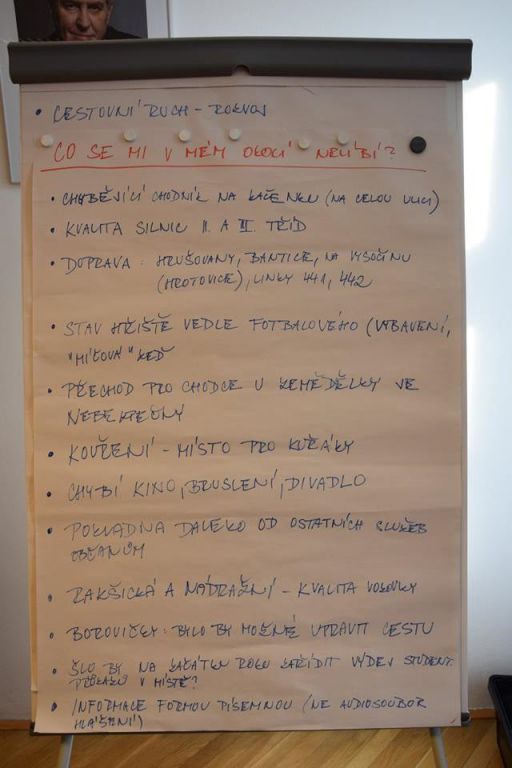 • CESTOVNÍ RUCH - ROZVOJ
CO SE MI V MÉM OKOLÍ NELÍBÍ?
• CHYBĚJÍCÍ CHODNÍK NA KAČENKU (NA CELOU ULICI)
• KVALITA SILNIC II. A III. TŘÍD
• DOPRAVA: HRUŠOVANY, BANTICE, NA VYSOČINU
(HROTOVICE), LINKY 441, 442
• STAV HŘIŠTĚ VEDLE FOTBALOVÉHO (VYBAVENÍ,
"MÍČOVÁ" ZEĎ
• PŘECHOD PRO CHODCE U ZEMĚDĚLKY VE
NEBEZPEČNÝ
• KOUŘENÍ - MÍSTO PRO KUŘÁKY
• CHYBÍ KINO, BRUSLENÍ, DIVADLO
• POKLADNA DALEKO OD OSTATNÍCH SLUŽEB
OBČANŮM
• RAKŠICKÁ A NÁDRAŽNÍ - KVALITA VOZOVKY
• BOROVIČKY: BYLO BY MOŽNÉ UPRAVIT CESTU
• ŠLO BY NA ZAČÁTKU ROKU ZAŘÍDIT VÝDEJ STUDENT.
PRŮKAZŮ V MÍSTĚ?
• INFORMACE FORMOU PÍSEMNOU (NE AUDIOSOUBOR
HLÁŠENÍ)